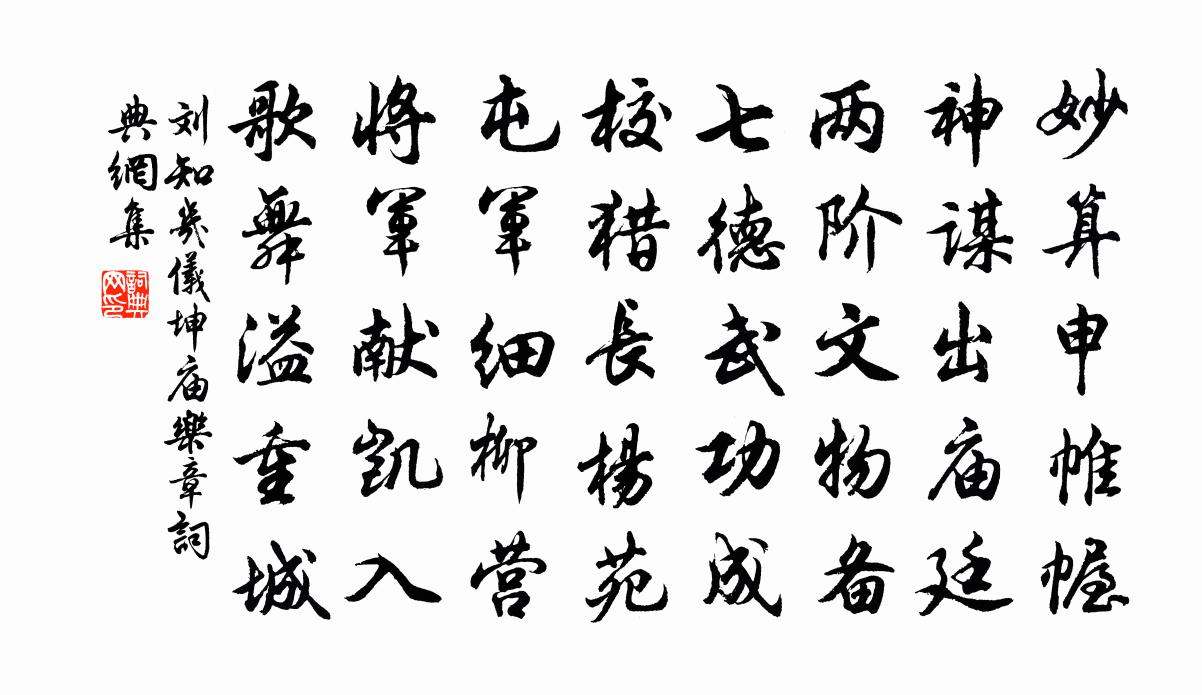 妙算申帷幄
神谋出庙廷
两阶文物备
七德武功成
校猎长杨苑
屯军细柳营
将军献凯入
歌舞溢重城
刘知幾儀坤庙樂章詞
典網集
詞典
网印